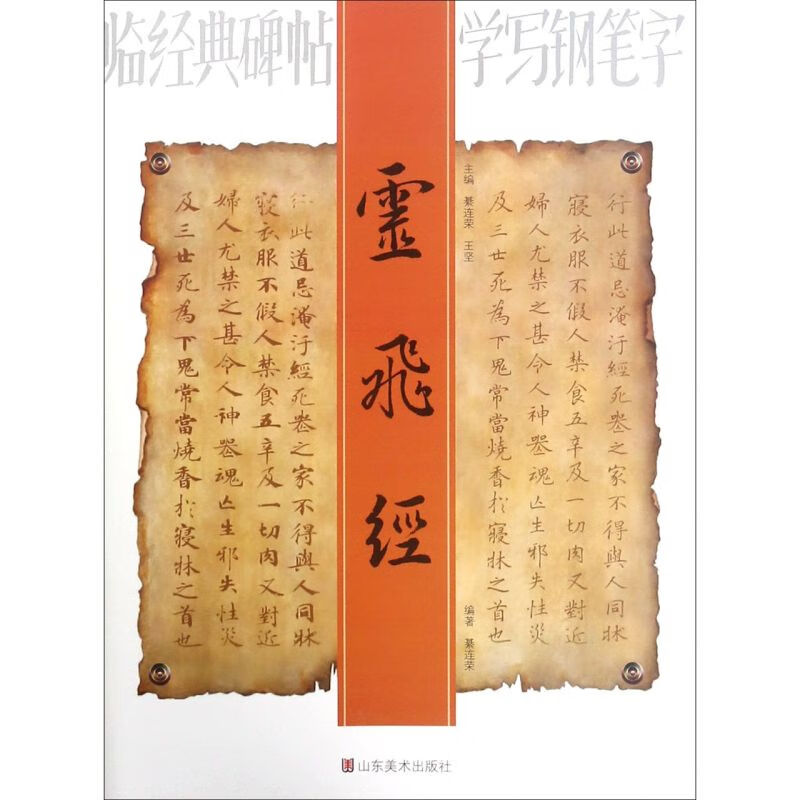 临经典碑帖
学写钢笔字
靈飛經
主编 綦连荣 王坚
行此道忌淹汙經死喪之家不得與人同牀
寢衣服不假人禁食五辛及一切肉又對近
婦人尤禁之甚令人神喪魂亡生邪失性災
及三世死為下鬼常當燒香於寢牀之首也
编著 綦连荣
行此道忌淹汙經死喪之家不得與人同牀
寢衣服不假人禁食五辛及一切肉又對近
婦人尤禁之甚令人神喪魂亡生邪失性災
及三世死為下鬼常當燒香於寢牀之首也
山东美术出版社